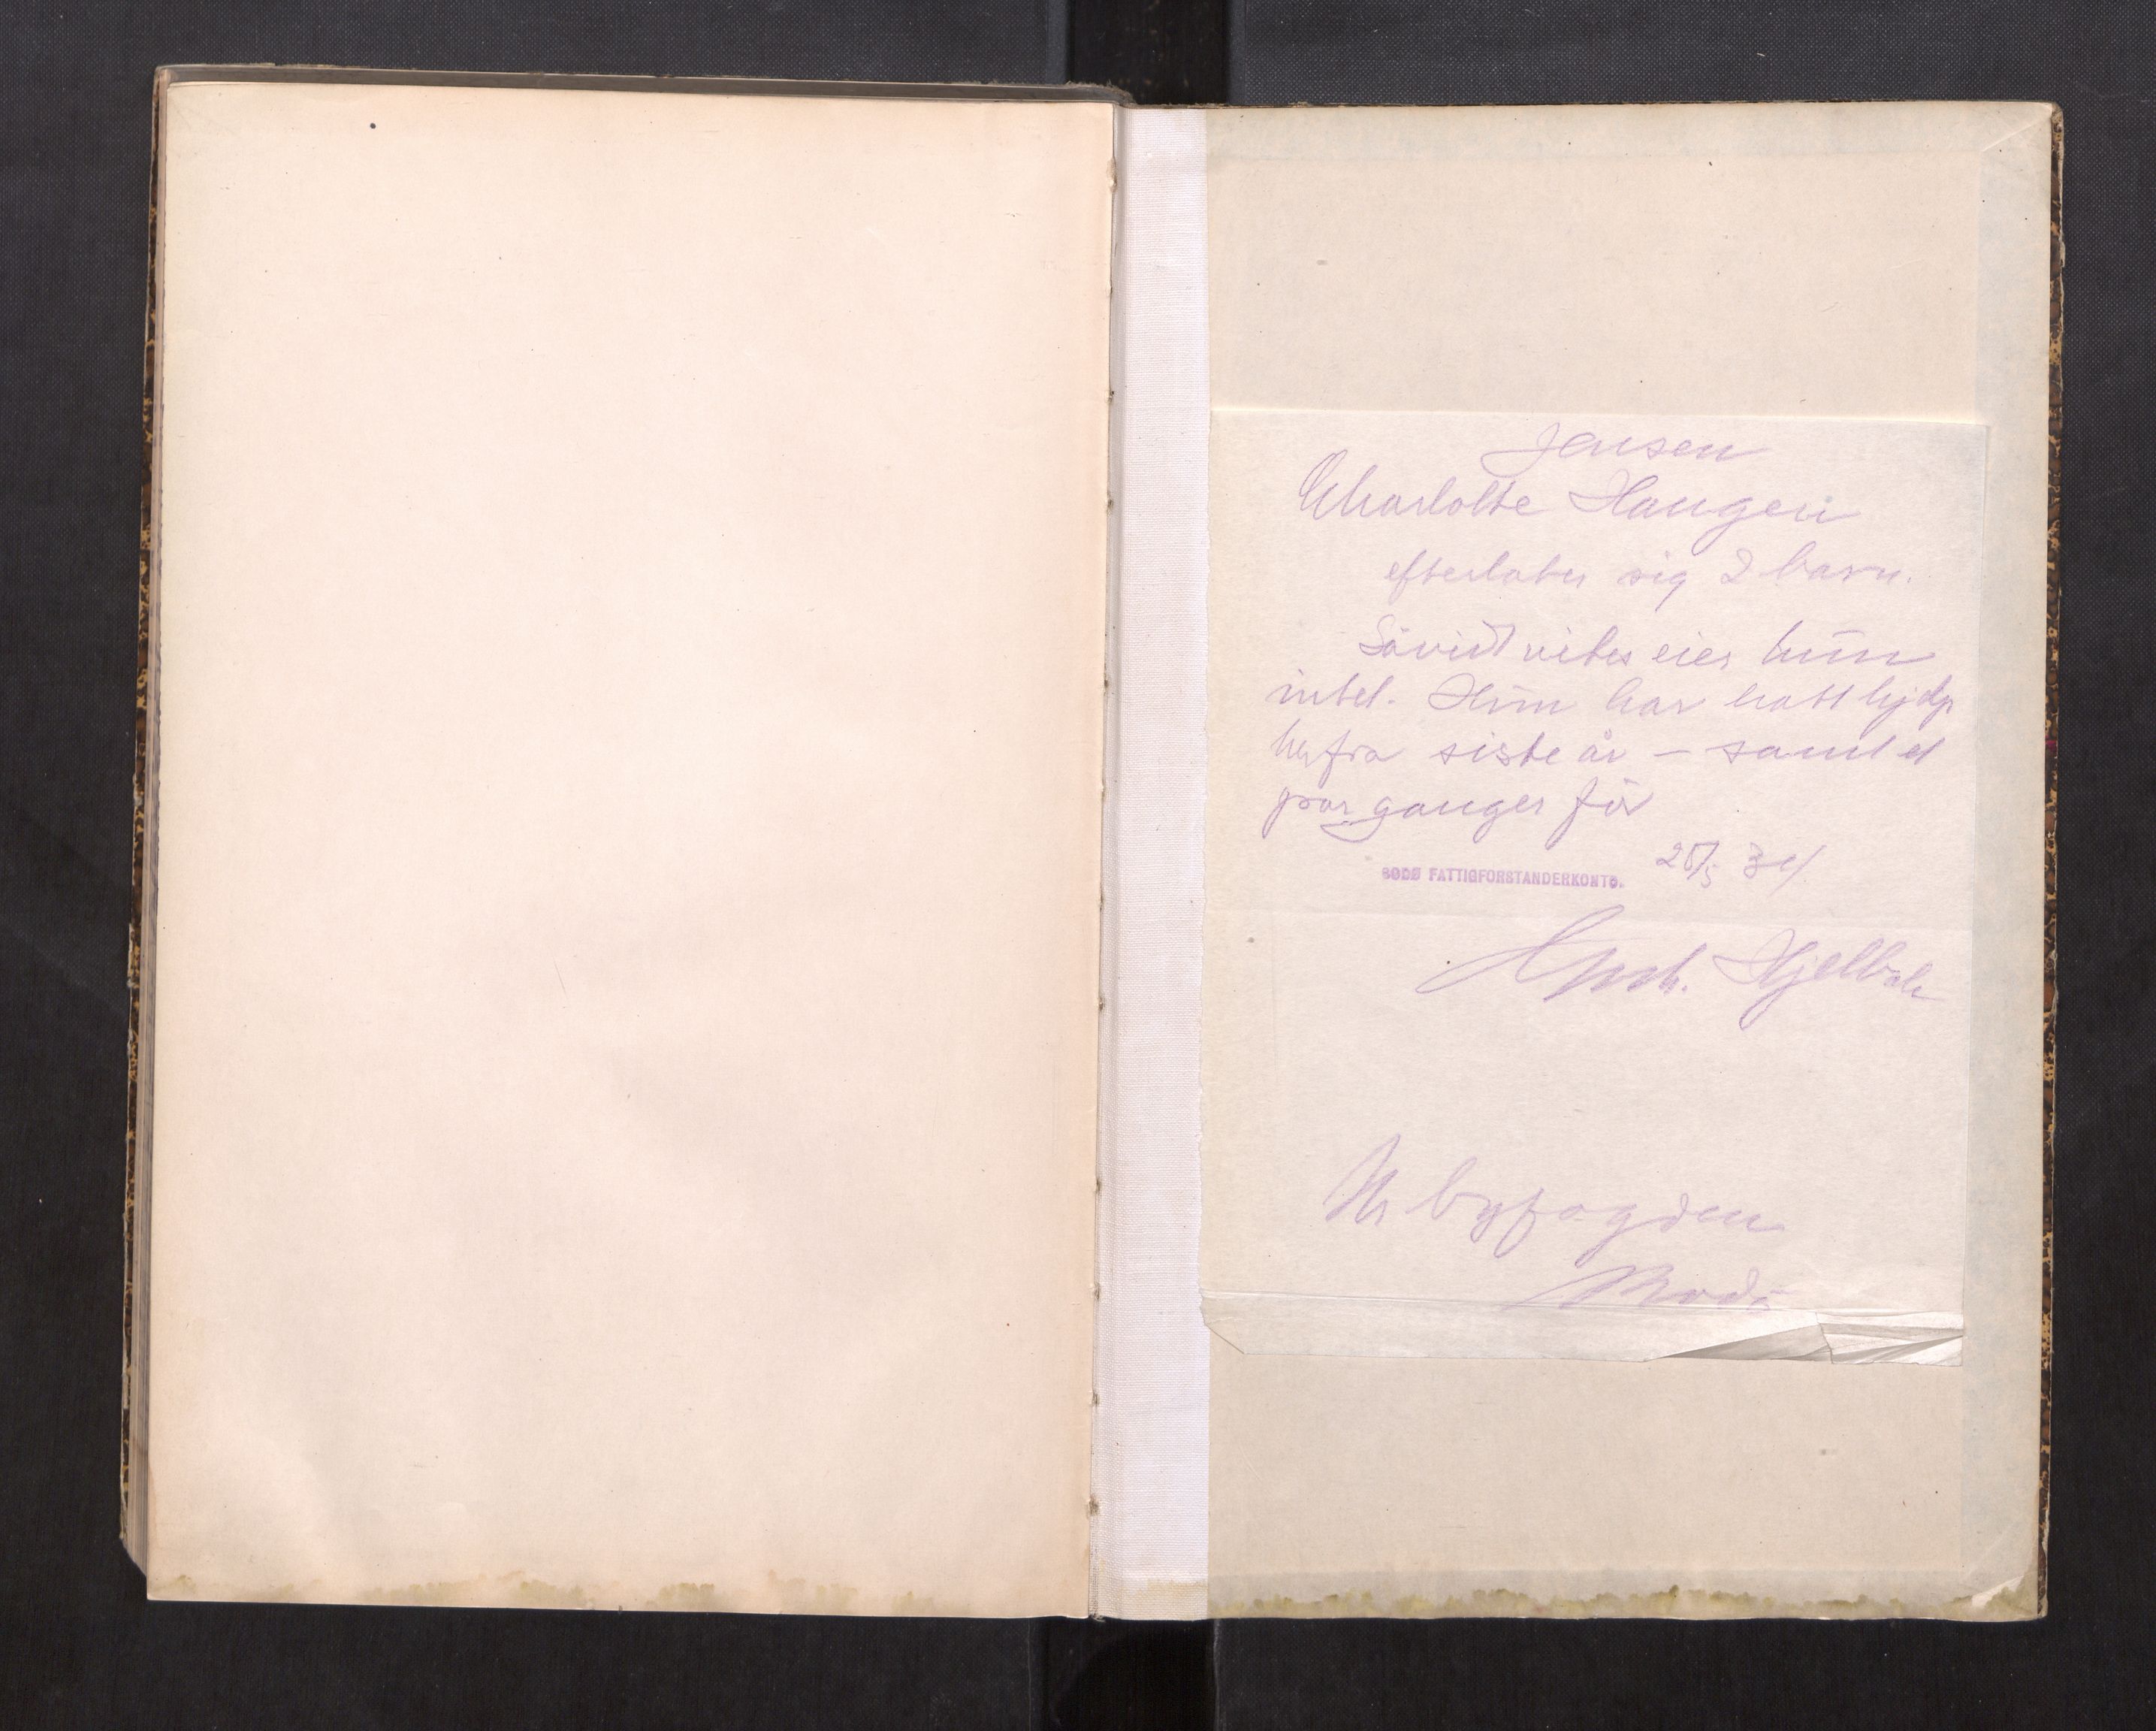 Jensen
Charlotte Haugen
efterlater sig 2 barn.
Såvidt vites eier hun
intet. Hun har hatt hjelp
herfra siste år – samt et
par ganger før
BODØ FATTIGFORSTANDERKONTO.
Hr byfogden
Bodø